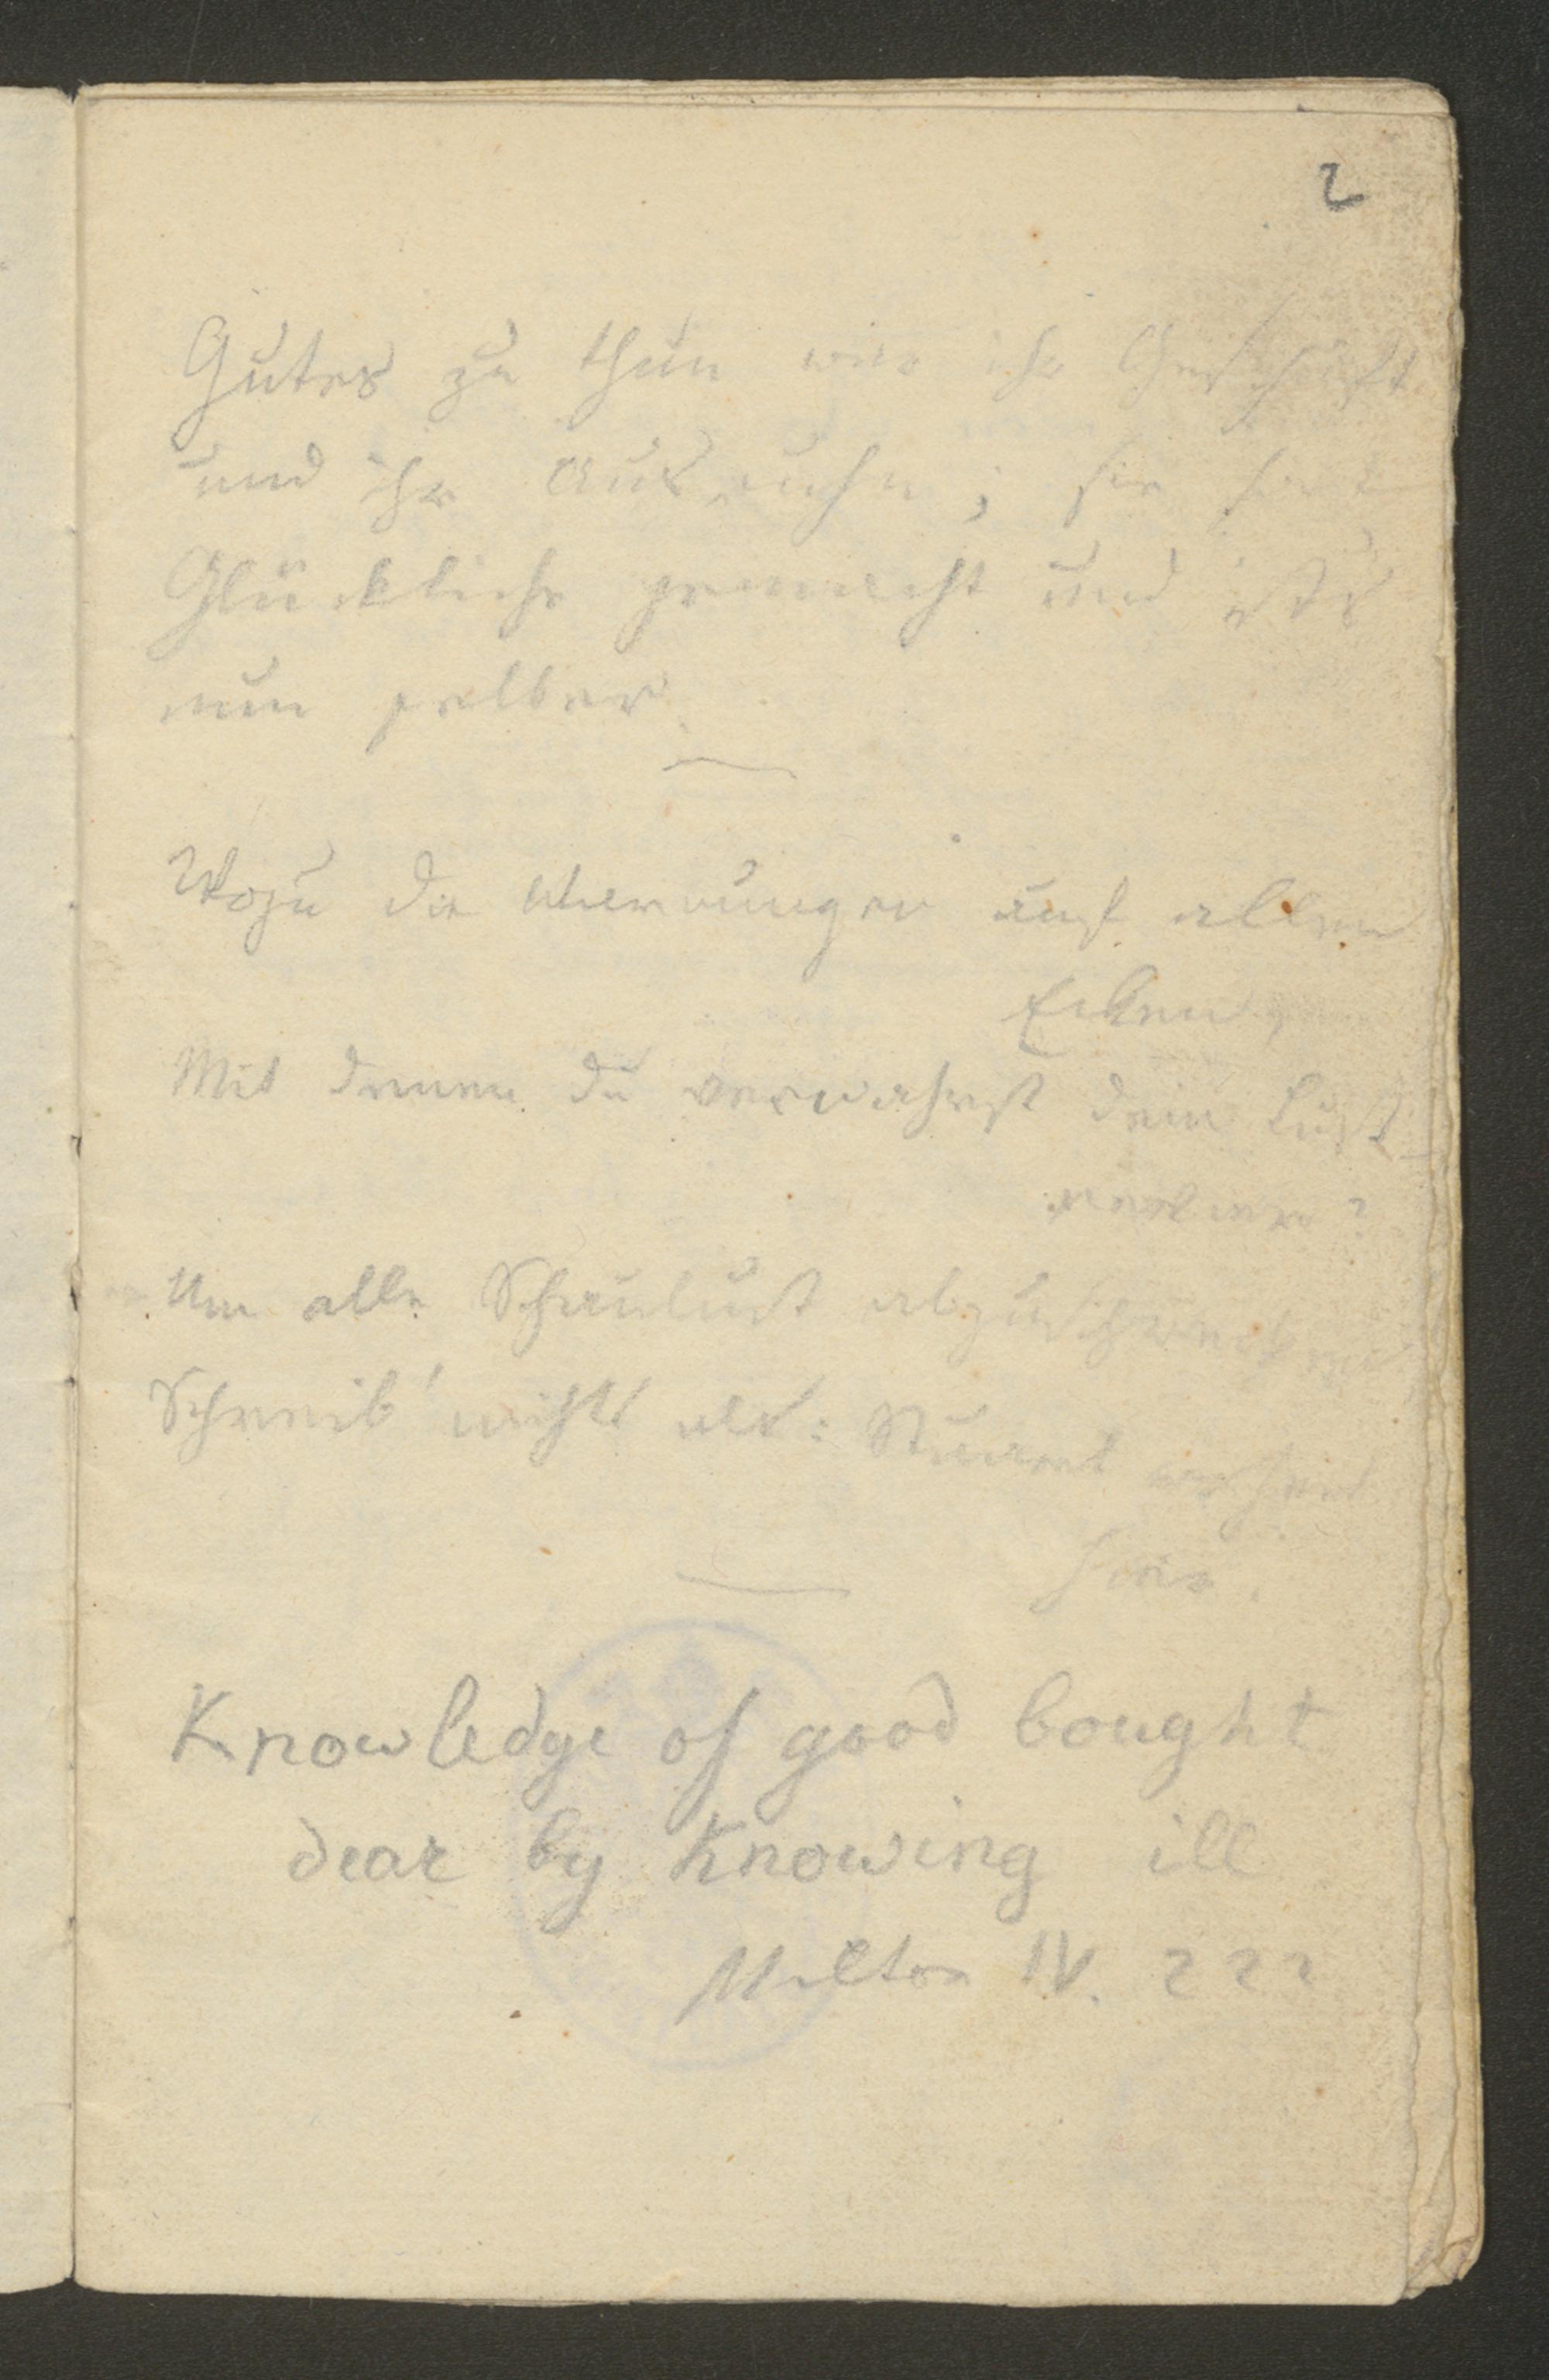 2
Gutes zu thun war ihr Geschäft
und ihr Ausruhn; sie hat
Glückliche gemacht und ists
nun selber
Wozu die Warnungen auf allen
Ecken,
Mit denen du verwahrst dein Lust-
revier?
Um alle Schaulust abzuschrecken
Schreib' nichts als: Stuart wohnt
hier.
Knowledge of good bought
dear by Knowing ill
Milton IV. 222